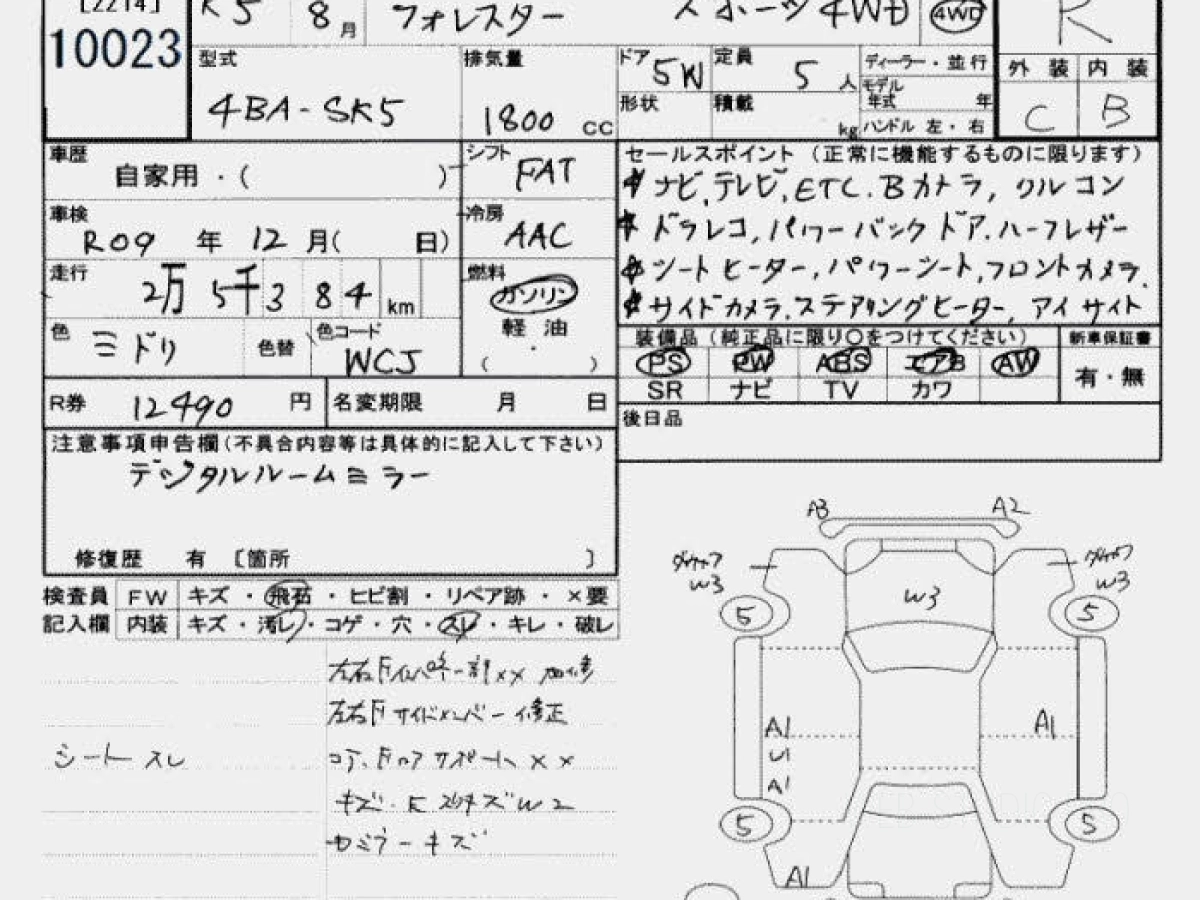 [2214]
10023
R5 8月 フォレスター スポーツ4WD 4WD R
型式 4BA-SK5
排気量 1800 CC
ドア 5W 定員 5 人
形状 積載 kg
ディーラー・並行
モデル年式 年
ハンドル 左・右
外装 内装
C B
車歴 自家用・( )
シフト FAT
車検 R09 年 12 月( 日)
冷房 AAC
走行 2万 5千 3 8 4 km
燃料 ガソリン
軽油
・
( )
色 ミドリ 色替 色コード WCJ
セールスポイント (正常に機能するものに限ります)
ナビ,テレビ,ETC.Bカメラ,クルコン
ドラレコ,パワーバックドア.ハーフレザー
シートヒーター,パワーシート,フロントカメラ,
サイドカメラ.ステアリングヒーター,アイサイト
装備品 (純正品に限り○をつけてください) 新車保証書
PS PW ABS エアB AW 有・無
SR ナビ TV カワ
後日品
R券 12490 円 名変期限 月 日
注意事項申告欄(不具合内容等は具体的に記入して下さい)
デジタルルームミラー
修復歴 有 〔箇所 〕
検査員 FW キズ・飛石・ヒビ割・リペア跡・×要
記入欄 内装 キズ・汚レ・コゲ・穴・スレ・キレ・破レ
左右Fインパネ XX 加修
左右Fサイドメンバー修正
シート スレ
コアサポート XX
キズ W2
ミラーキズ
A3 A2
W3 W3 W3
5 5
A1 A1
U1
A1
5 5
A1